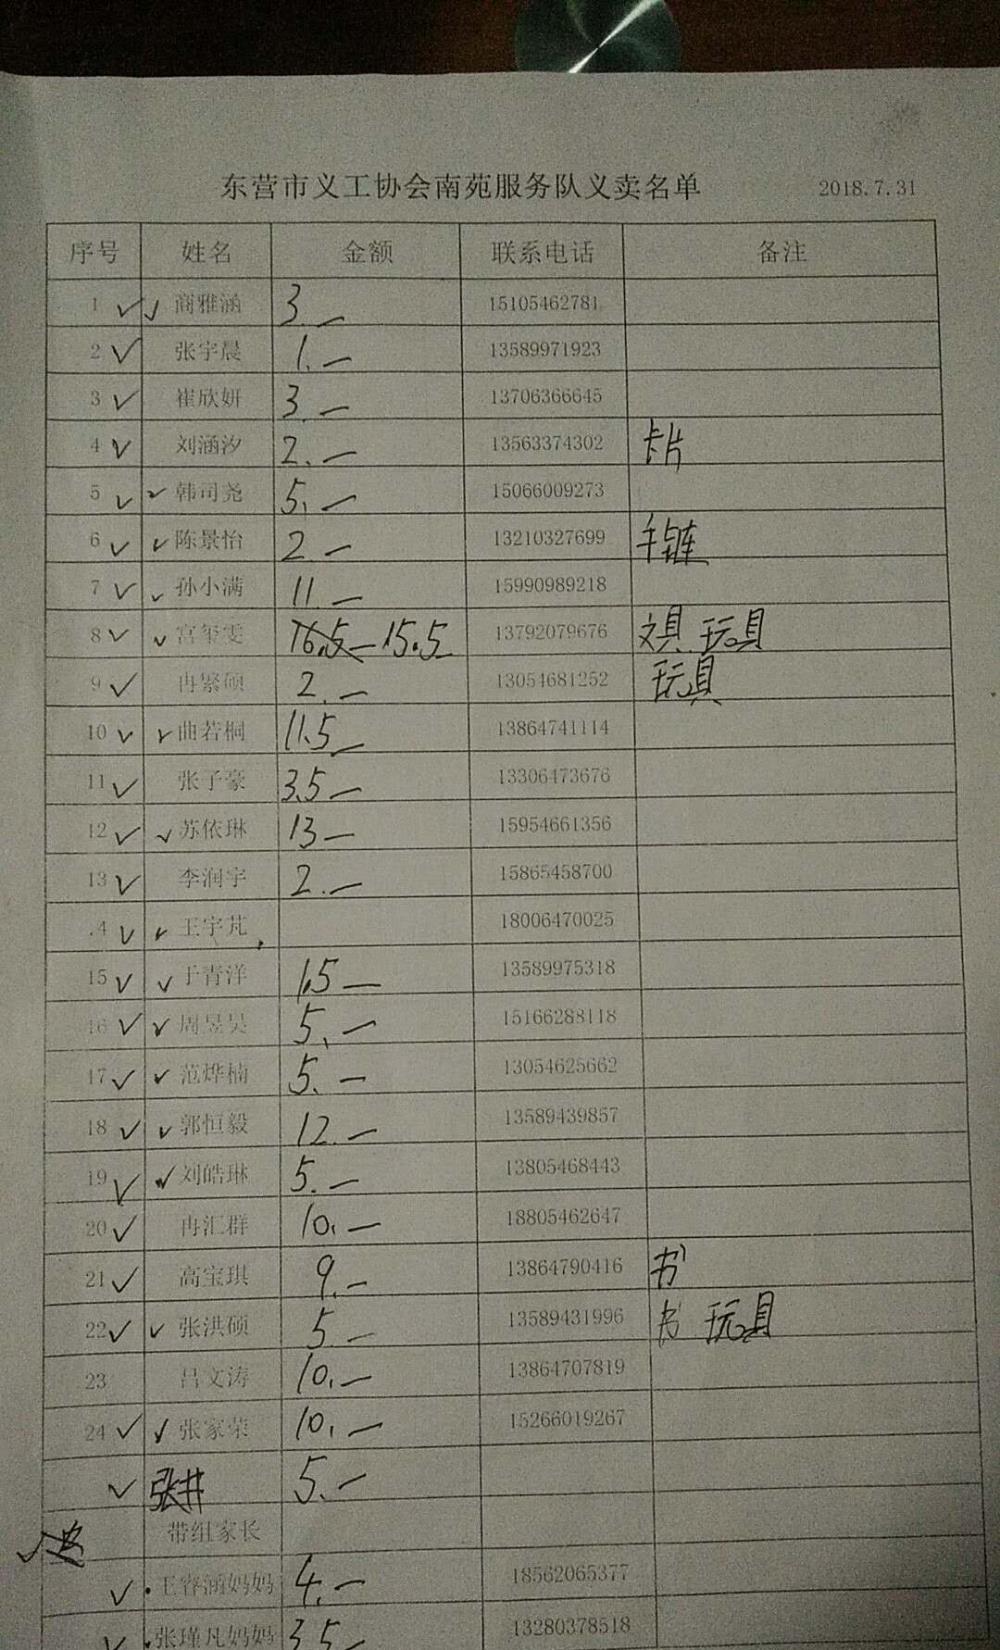 东营市义工协会南苑服务队义卖名单 2018.7.31
序号 姓名 金额 联系电话 备注
1 ✓ ✓ 商雅涵 3.— 15105462781
2 ✓ 张宇晨 1.— 13589971923
3 ✓ 崔欣妍 3.— 13706366645
4 ✓ 刘涵汐 2.— 13563374302 卡片
5 ✓ ✓ 韩司尧 5.— 15066009273
6 ✓ ✓ 陈景怡 2.— 13210327699 手链
7 ✓ ✓ 孙小满 11.— 15990989218
8 ✓ ✓ 宫玺雯 16.5— 15.5— 13792079676 文具 玩具
9 ✓ 冉繁硕 2.— 13054681252 玩具
10 ✓ ✓ 曲若桐 11.5— 13864741114
11 ✓ 张子豪 3.5— 13306473676
12 ✓ ✓ 苏依琳 13— 15954661356
13 ✓ 李润宇 2.— 15865458700
14 ✓ ✓ 王宇芃 18006470025
15 ✓ ✓ 于青洋 1.5— 13589975318
16 ✓ ✓ 周昱昊 5.— 15166288118
17 ✓ ✓ 范烨楠 5.— 13054625662
18 ✓ ✓ 郭恒毅 12.— 13589439857
19 ✓ ✓ 刘皓琳 5.— 13805468443
20 ✓ 冉汇群 10.— 18805462647
21 ✓ 高宝琪 9.— 13864790416 书
22 ✓ ✓ 张洪硕 5.— 13589431996 书 玩具
23 吕文涛 10.— 13864707819
24 ✓ ✓ 张家荣 10.— 15266019267
✓ 张井 5.—
带组家长
✓ 王睿涵妈妈 4.— 18562065377
✓ 张瑾凡妈妈 3.5— 13280378518